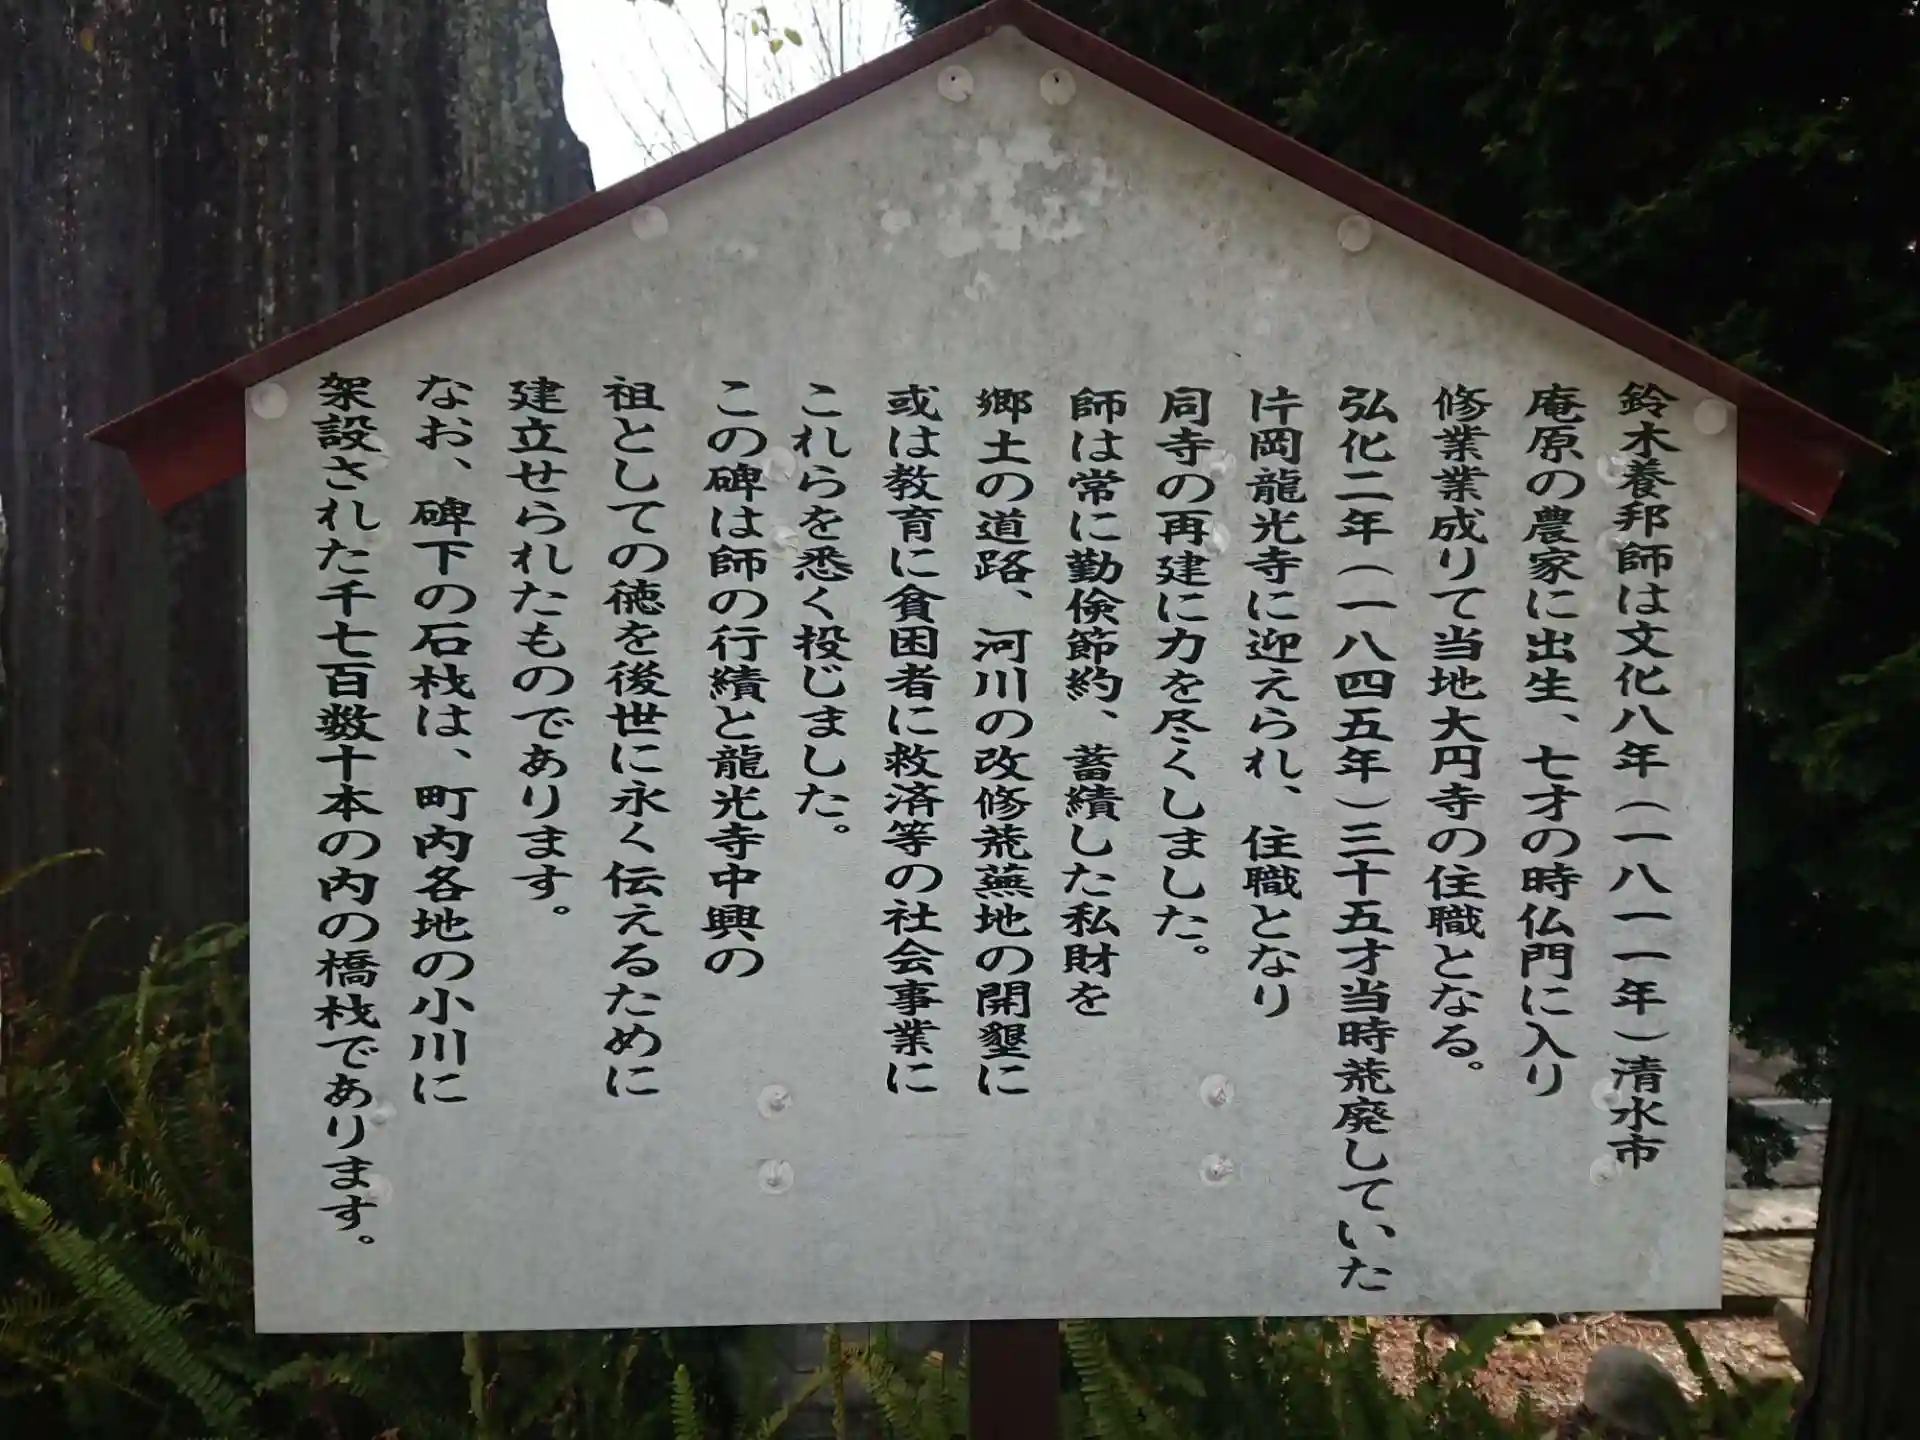 鈴木養邦師は文化八年(一八一一年)清水市
庵原の農家に出生、七才の時仏門に入り
修業業成りて当地大円寺の住職となる。
弘化二年(一八四五年)三十五才当時荒廃していた
片岡龍光寺に迎えられ、住職となり
同寺の再建に力を尽くしました。
師は常に勤倹節約、蓄績した私財を
郷土の道路、河川の改修荒蕪地の開墾に
或は教育に貧困者に救済等の社会事業に
これらを悉く投じました。
この碑は師の行績と龍光寺中興の
祖としての徳を後世に永く伝えるために
建立せられたものであります。
なお、碑下の石栈は、町内各地の小川に
架設された千七百数十本の内の橋栈であります。